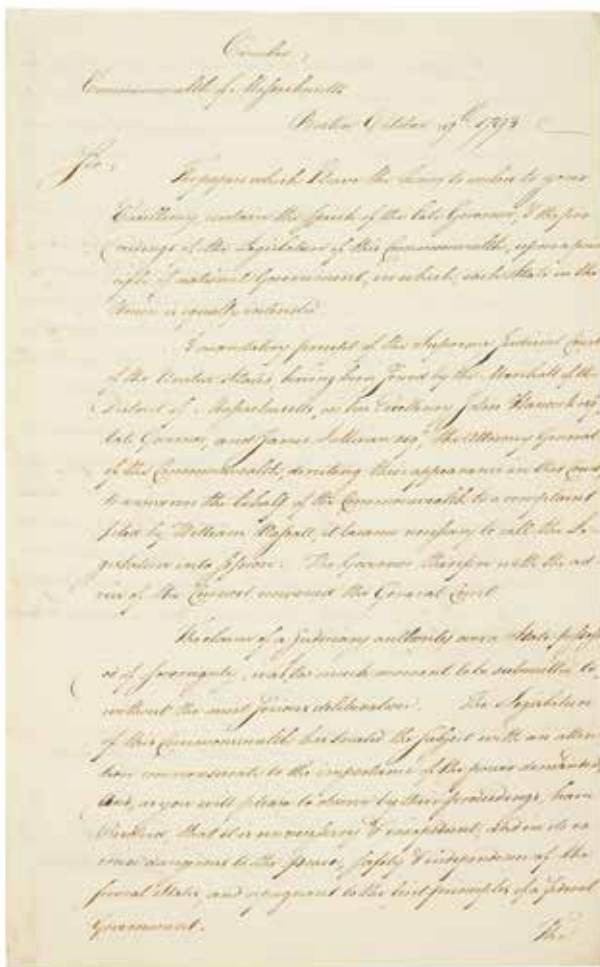 Circular.
Commonwealth of Massachusetts
Boston October 9th 1793
Sir,
The papers which I have the honor to inclose to your
Excellency contain the speech of the late Governor, & the pro
ceedings of the Legislature of this Commonwealth, upon a prin
ciple of national Government, in which each State in the
Union is equally interested.
A mandatory precept of the Supreme Judicial Court
of the United States, having been served by the Marshall of the
District of Massachusetts, on his Excellency John Hancock esqr
late Governor, and James Sullivan esqr, the Attorney General
of this Commonwealth, directing their appearance in that Court
to answer on the behalf of the Commonwealth to a complaint
filed by William Vassall, it became necessary to call the Le
gislature into session. The Governor therefore with the ad
vice of the Council convened the General Court
The claim of a Judiciary authority over a State possess
ed of sovereignty, was too much moment to be submitted to,
without the most serious deliberation. The Legislature
of this Commonwealth has treated the subject with an atten
tion commensurate to the importance of the power demanded,
And, as you will please to observe by their proceedings, have
that it is unnecessary & inexpedient, and in its ex
ercise dangerous to the peace, safety & independence of the
several States, and repugnant to the first principles of a federal
Government.
The